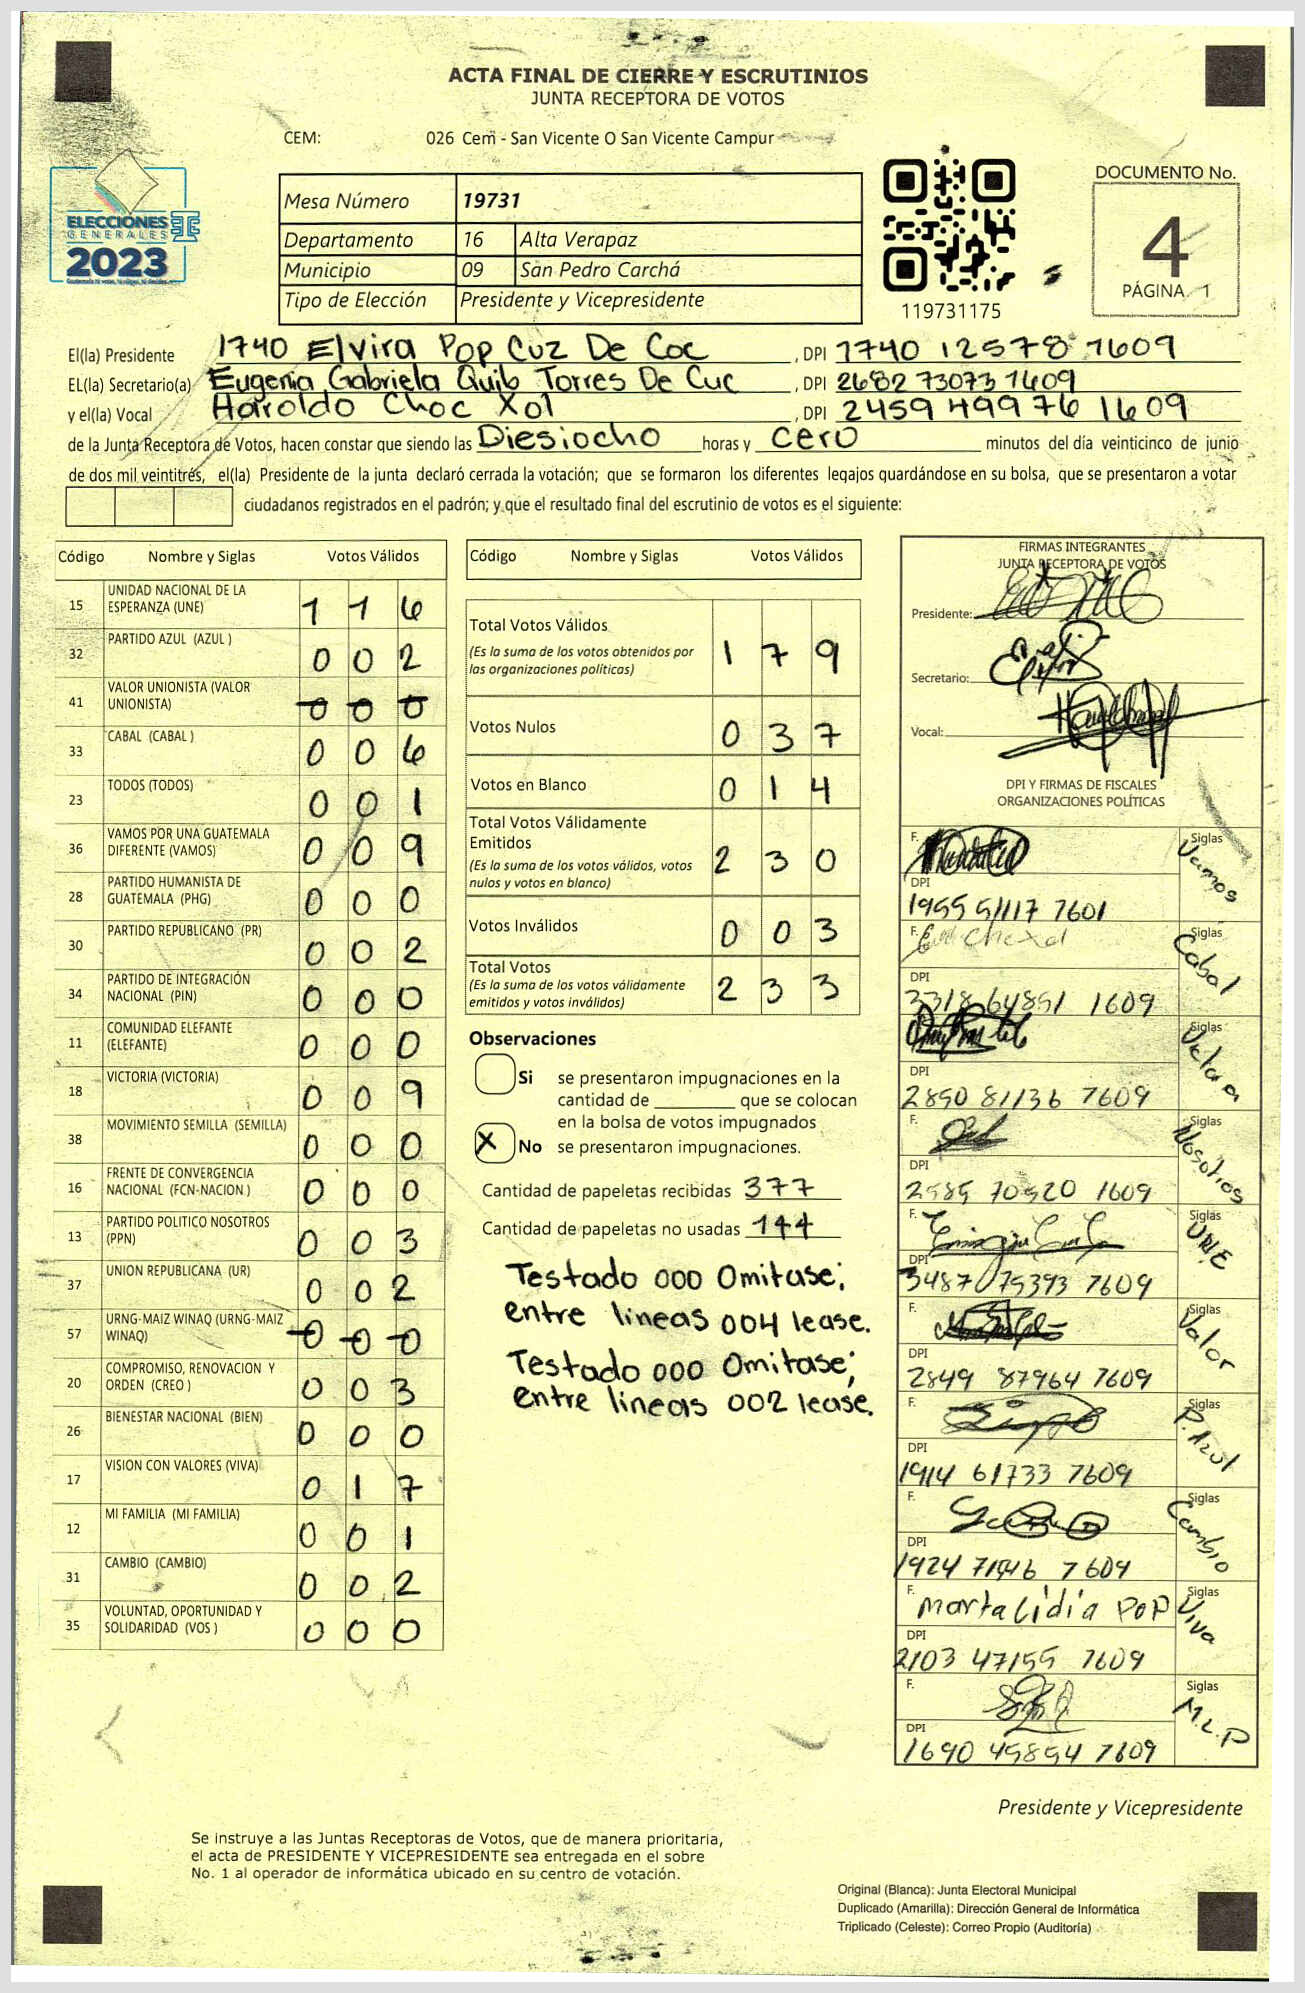 ACTA FINAL DE CIERRE Y ESCRUTINIOS
JUNTA RECEPTORA DE VOTOS
CEM: 026 Cem - San Vicente O San Vicente Campur
ELECCIONES
GENERALES
2023
Mesa Número 19731
Departamento 16 Alta Verapaz
Municipio 09 San Pedro Carchá
Tipo de Elección Presidente y Vicepresidente
119731175
DOCUMENTO No.
4
PÁGINA 1
El(la) Presidente 1740 Elvira Pop Cuz De Coc , DPI 1740 12578 1609
EL(la) Secretario(a) Eugenia Gabriela Quib Torres De Cuc , DPI 2682 73073 1609
y el(la) Vocal Haroldo Choc Xol , DPI 2459 49976 1609
de la Junta Receptora de Votos, hacen constar que siendo las Diesiocho horas y cero minutos del día veinticinco de junio
de dos mil veintitrés, el(la) Presidente de la junta declaró cerrada la votación; que se formaron los diferentes legajos guardándose en su bolsa, que se presentaron a votar
ciudadanos registrados en el padrón; y que el resultado final del escrutinio de votos es el siguiente:
Código Nombre y Siglas Votos Válidos
15 UNIDAD NACIONAL DE LA ESPERANZA (UNE) 1 1 6
32 PARTIDO AZUL (AZUL ) 0 0 2
41 VALOR UNIONISTA (VALOR UNIONISTA) 0 0 0
33 CABAL (CABAL ) 0 0 6
23 TODOS (TODOS) 0 0 1
36 VAMOS POR UNA GUATEMALA DIFERENTE (VAMOS) 0 0 9
28 PARTIDO HUMANISTA DE GUATEMALA (PHG) 0 0 0
30 PARTIDO REPUBLICANO (PR) 0 0 2
34 PARTIDO DE INTEGRACIÓN NACIONAL (PIN) 0 0 0
11 COMUNIDAD ELEFANTE (ELEFANTE) 0 0 0
18 VICTORIA (VICTORIA) 0 0 9
38 MOVIMIENTO SEMILLA (SEMILLA) 0 0 0
16 FRENTE DE CONVERGENCIA NACIONAL (FCN-NACION ) 0 0 0
13 PARTIDO POLITICO NOSOTROS (PPN) 0 0 3
37 UNION REPUBLICANA (UR) 0 0 2
57 URNG-MAIZ WINAQ (URNG-MAIZ WINAQ) 0 0 0
20 COMPROMISO, RENOVACION Y ORDEN (CREO ) 0 0 3
26 BIENESTAR NACIONAL (BIEN) 0 0 0
17 VISION CON VALORES (VIVA) 0 1 7
12 MI FAMILIA (MI FAMILIA) 0 0 1
31 CAMBIO (CAMBIO) 0 0 2
35 VOLUNTAD, OPORTUNIDAD Y SOLIDARIDAD (VOS ) 0 0 0
Código Nombre y Siglas Votos Válidos
Total Votos Válidos 1 7 9
(Es la suma de los votos obtenidos por
las organizaciones políticas)
Votos Nulos 0 3 7
Votos en Blanco 0 1 4
Total Votos Válidamente
Emitidos 2 3 0
(Es la suma de los votos válidos, votos
nulos y votos en blanco)
Votos Inválidos 0 0 3
Total Votos 2 3 3
(Es la suma de los votos válidamente
emitidos y votos inválidos)
Observaciones
Si se presentaron impugnaciones en la
cantidad de ________ que se colocan
en la bolsa de votos impugnados
X No se presentaron impugnaciones.
Cantidad de papeletas recibidas 377
Cantidad de papeletas no usadas 144
Testado 000 Omitase;
entre lineas 004 lease.
Testado 000 Omitase;
entre lineas 002 lease.
FIRMAS INTEGRANTES
JUNTA RECEPTORA DE VOTOS
Presidente:
Secretario:
Vocal:
DPI Y FIRMAS DE FISCALES
ORGANIZACIONES POLÍTICAS
F. Siglas Vamos
DPI 1955 51117 1601
F. Siglas Cabal
DPI 3318 64851 1609
F. Siglas Victoria
DPI 2890 81136 1609
F. Siglas Nosotros
DPI 2585 70520 1609
F. Siglas UNE
DPI 3487 75393 1609
F. Siglas Valor
DPI 2849 87964 1609
F. Siglas P. Azul
DPI 1914 61733 1609
F. Siglas Cambio
DPI 1924 1609
F. Marta Lidia Pop Siglas Viva
DPI 2103 47155 1609
F. Siglas M.L.P
DPI 1690 45854 1609
Presidente y Vicepresidente
Se instruye a las Juntas Receptoras de Votos, que de manera prioritaria,
el acta de PRESIDENTE Y VICEPRESIDENTE sea entregada en el sobre
No. 1 al operador de informática ubicado en su centro de votación.
Original (Blanca): Junta Electoral Municipal
Duplicado (Amarilla): Dirección General de Informática
Triplicado (Celeste): Correo Propio (Auditoría)